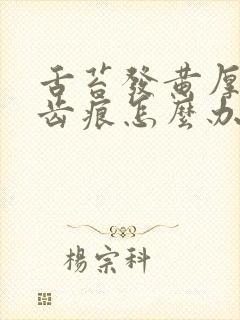 舌苔發黃厚
齒痕怎麼办
楊宗科